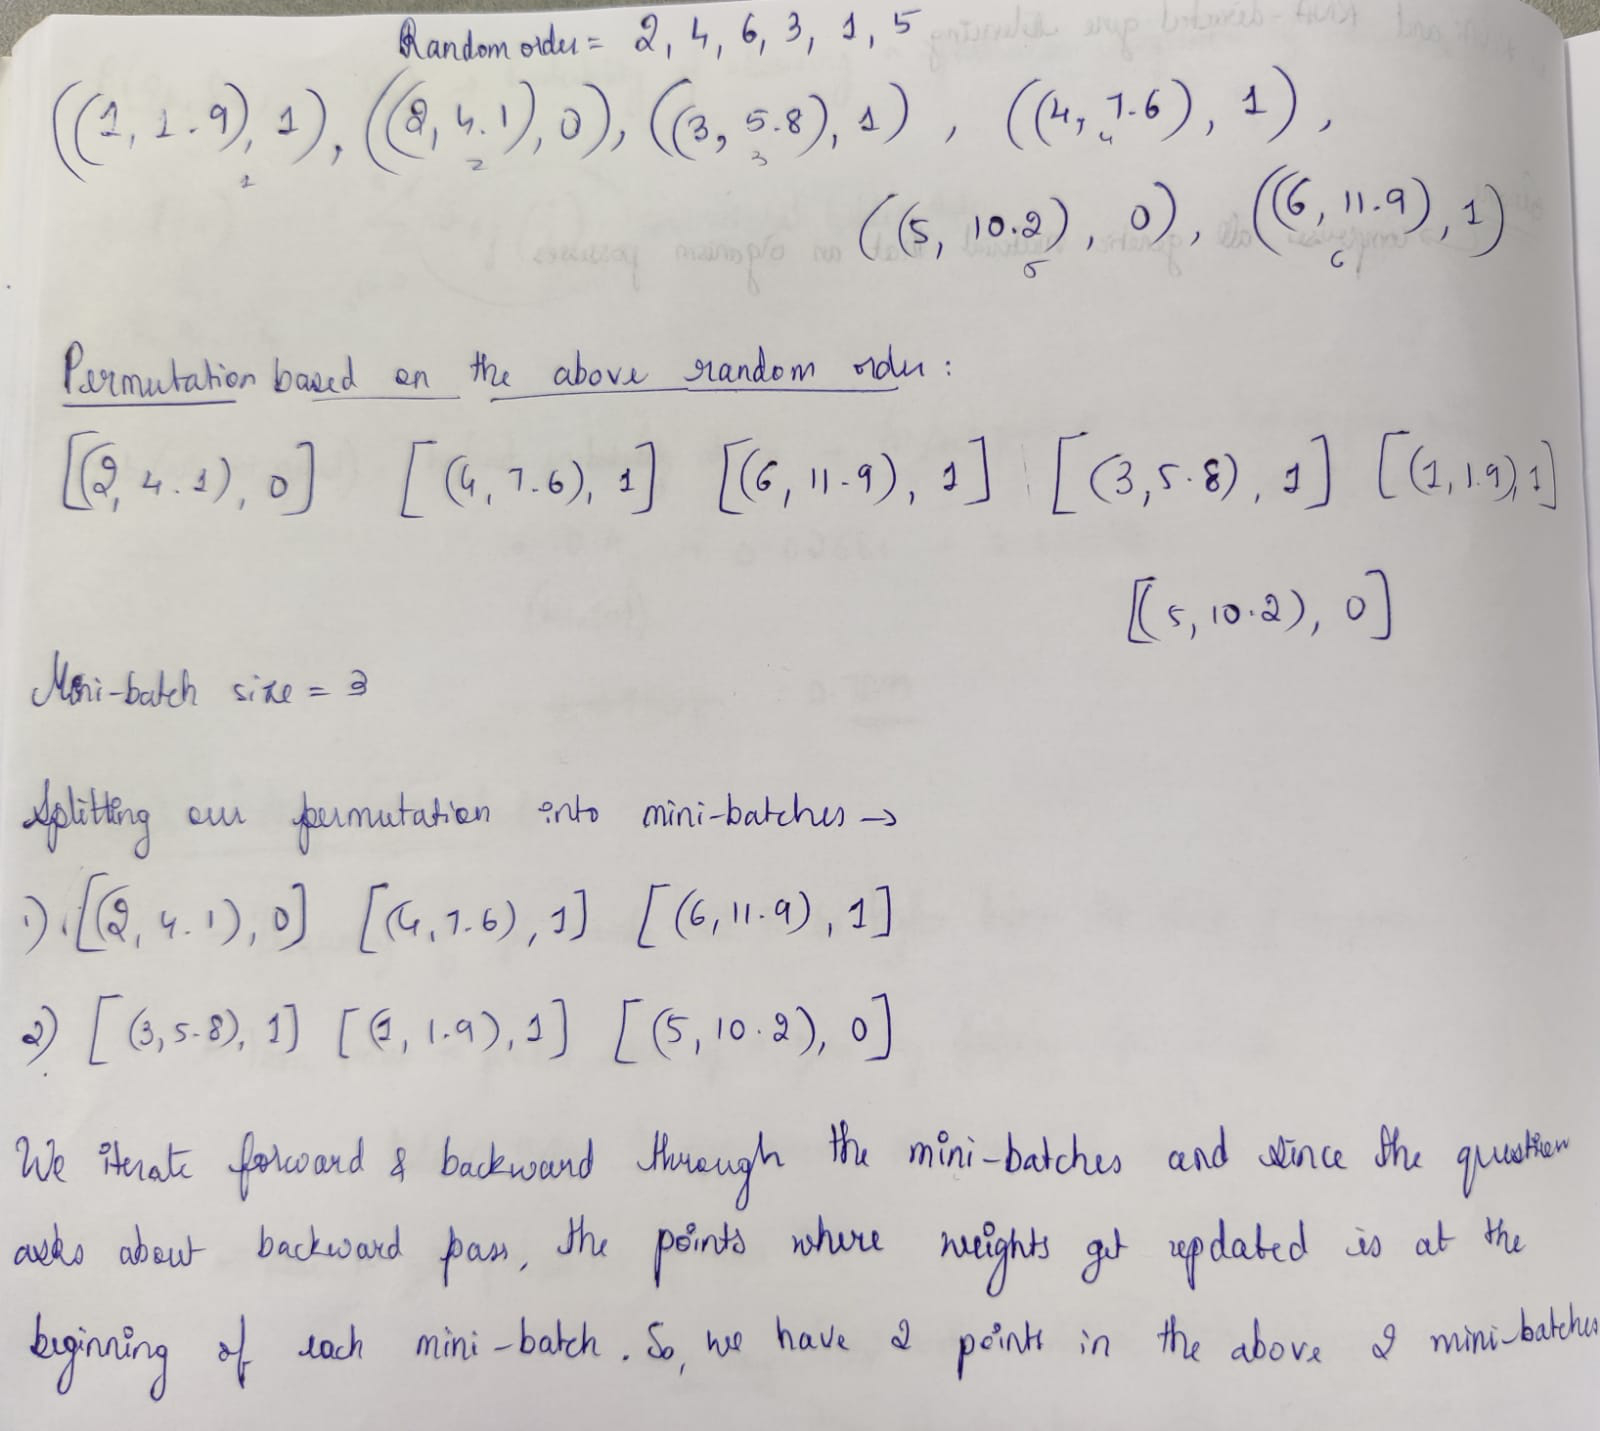 Random order = 2, 4, 6, 3, 1, 5
((1, 1.9), 1), ((2, 4.1), 0), ((3, 5.8), 1), ((4, 7.6), 1),
1 2 3 4
((5, 10.2), 0), ((6, 11.9), 1)
5 6
Permutation based on the above random order :
[(2, 4.1), 0] [(4, 7.6), 1] [(6, 11.9), 1] [(3, 5.8), 1] [(1, 1.9), 1]
[(5, 10.2), 0]
Mini-batch size = 3
Splitting our permutation into mini-batches →
1) [(2, 4.1), 0] [(4, 7.6), 1] [(6, 11.9), 1]
2) [(3, 5.8), 1] [(1, 1.9), 1] [(5, 10.2), 0]
We iterate forward & backward through the mini-batches and since the question
asks about backward pass, the points where weights get updated is at the
beginning of each mini-batch. So, we have 2 points in the above 2 mini-batches